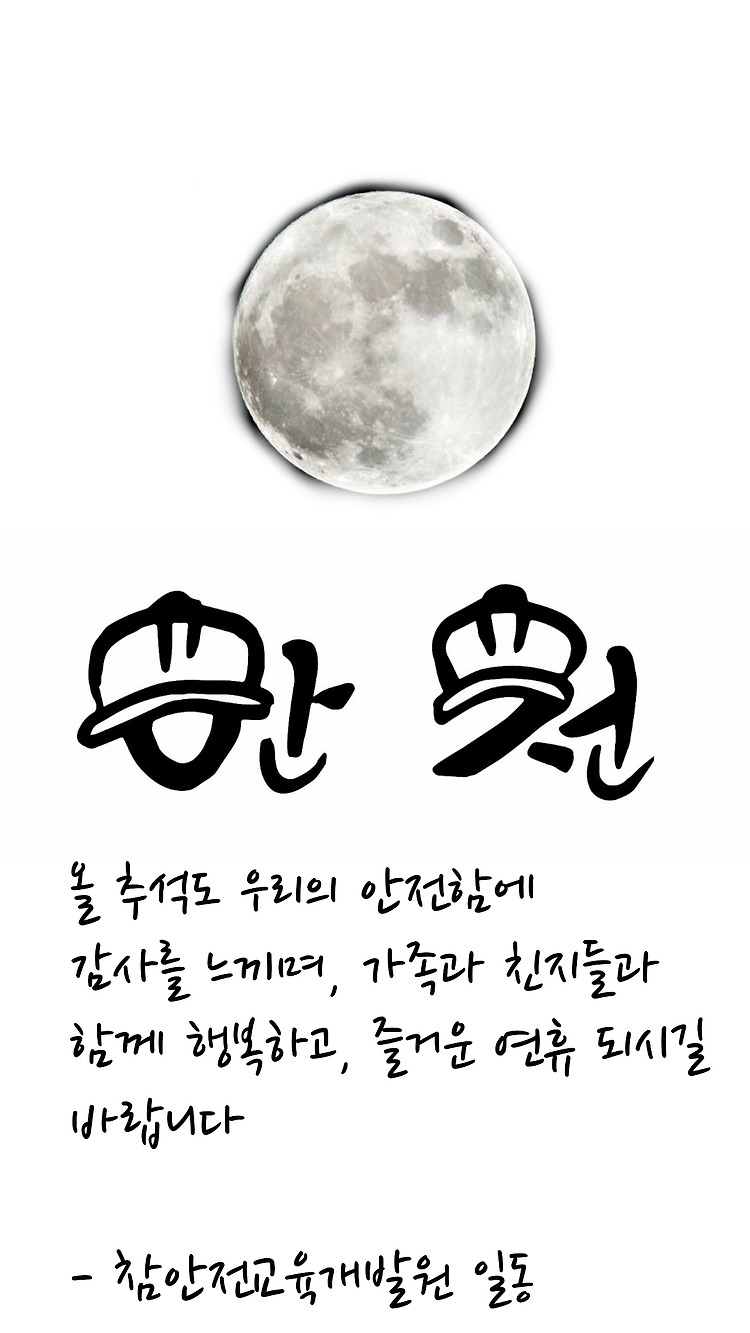 안 전
올 추석도 우리의 안전함에
감사를 느끼며, 가족과 친지들과
함께 행복하고, 즐거운 연휴 되시길
바랍니다
- 참안전교육개발원 일동